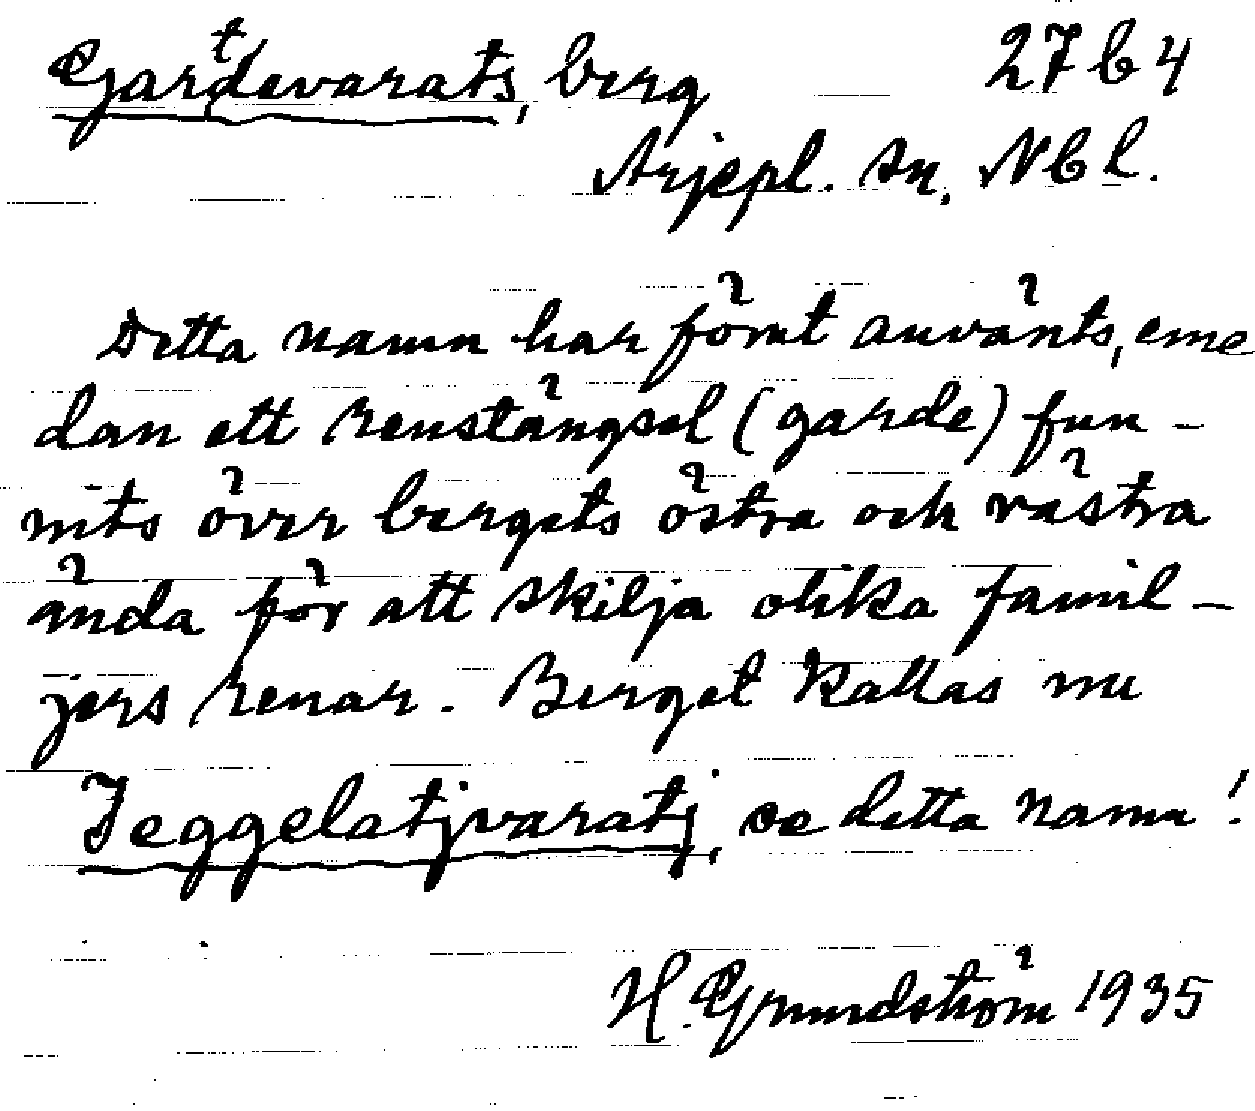 Gardevarats, berg 27b4
Arjepl. sn, Nbl.
Detta namn har förut använts, eme
dan ett renstängsel (garde) fun-
nits över bergets östra och västra
ända för att skilja olika famil-
jers renar. Berget kallas nu
Jeggelatjvaratj, se detta namn!
H. Grundström 1935